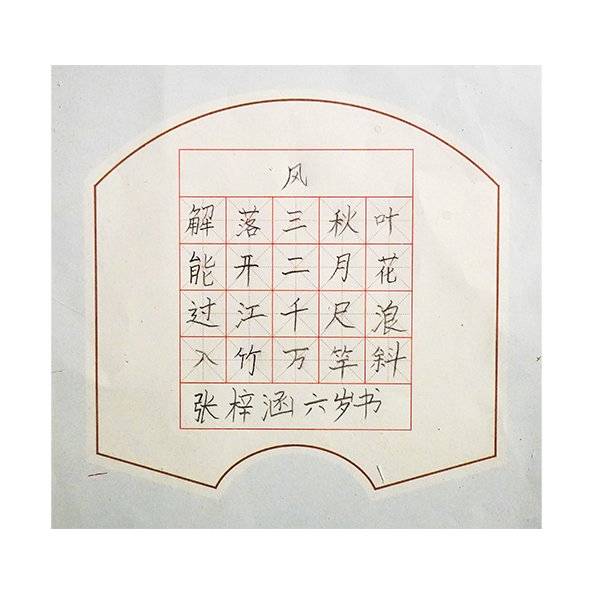 风
解落三秋叶
能开二月花
过江千尺浪
入竹万竿斜
张梓涵六岁书